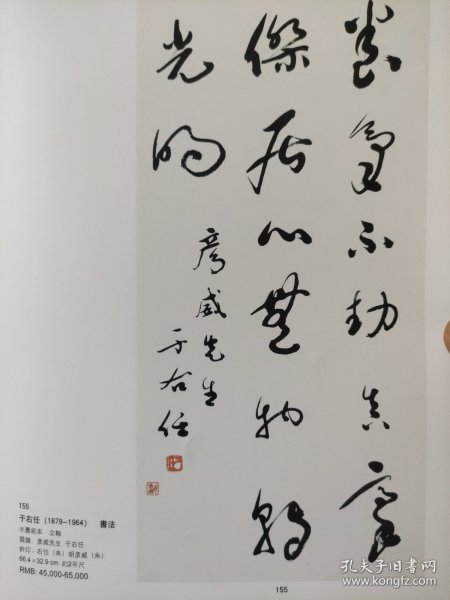 養氣不動真豪
傑居心無物轉
光明
彥威先生
于右任
155
于右任（1879-1964） 書法
水墨紙本 立軸
題識：彥威先生 于右任
鈐印：右任（朱）胡彥威（朱）
66.4×32.9 cm 約2平尺
RMB: 45,000-65,000
155
孔夫子旧书网